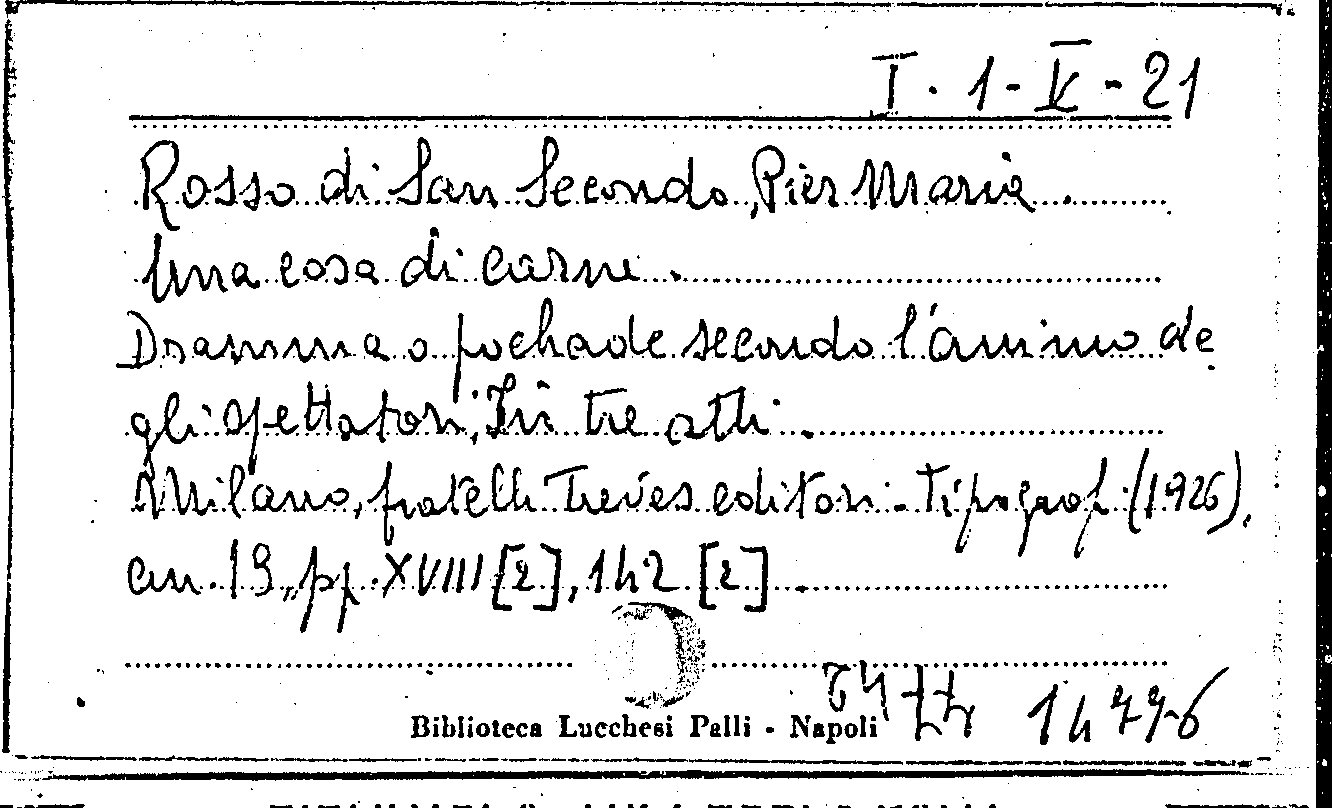 I. 1 - V - 21
Rosso di San Secondo, Pier Maria.
Una cosa di carne.
Dramma o pochade secondo l'animo de
gli spettatori; In tre atti.
Milano, fratelli Treves editori - tipograf. (1926),
cm. 19, pp. XVIII [2], 142 [2].
Biblioteca Lucchesi Palli - Napoli